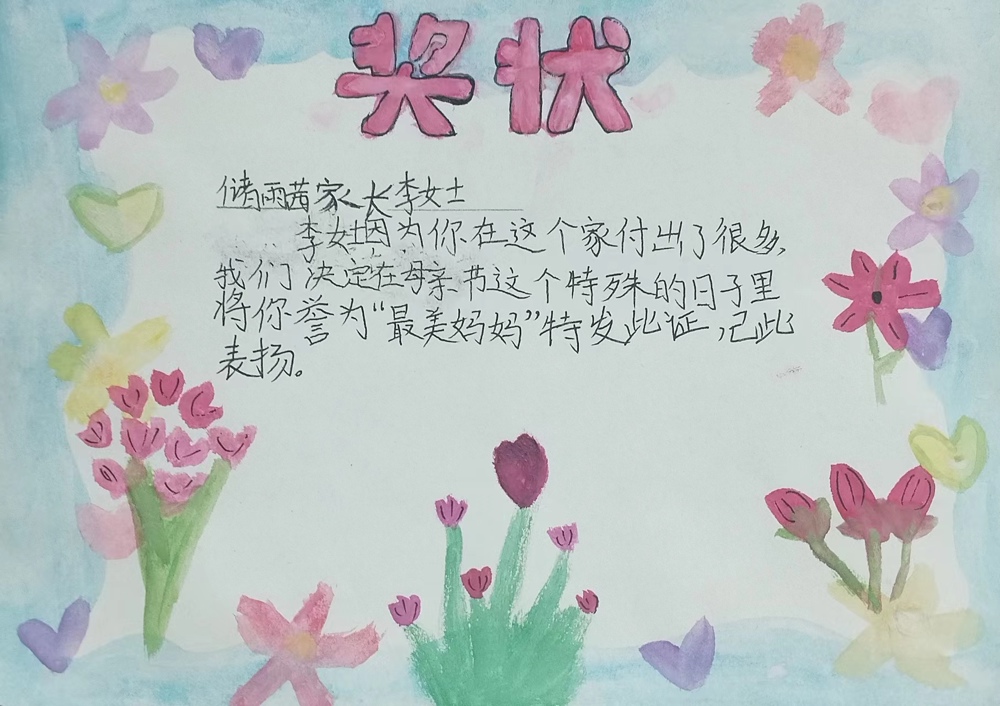 奖状
储雨茜家长李女士
李女士因为你在这个家付出了很多,
我们决定在母亲节这个特殊的日子里
将你誉为“最美妈妈”特发此证,己此
表扬。